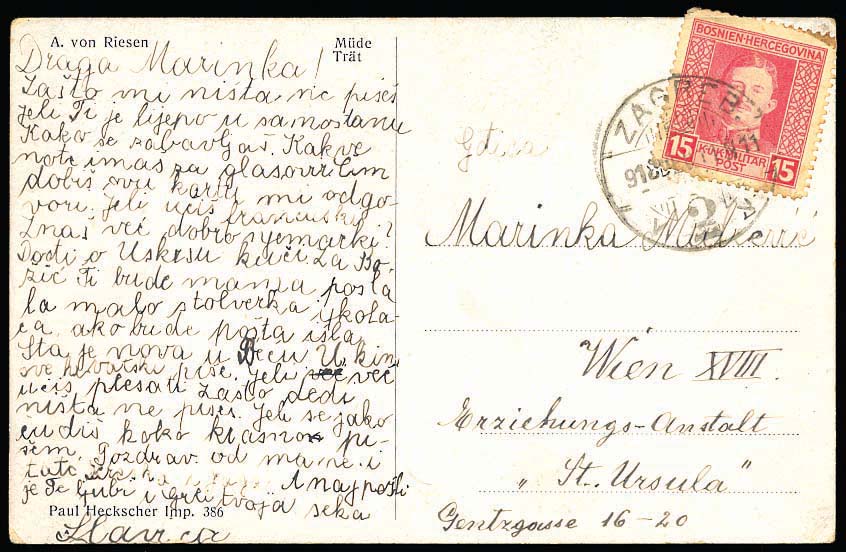 A. von Riesen
Müde
Trät
Draga Marinka!
Zašto mi ništa ne pišeš
Jeli Ti je lijepo u samostanu
Kako se zabavljaš. Kakve
note imaš za glasovir Čim
dobiš ovu kartu mi odgo-
vori. Jeli učiš francuski
Znaš već dobro njemački?
Dođi o Uskrsu kući za Bo-
žić Ti bude mama posla
la malo štolverka i kola-
ča, ako bude pošta išla
Šta je nova u Beču U kini
ove hrvatski piše. Jeli već
učiš plesati Zašto Dedi
ništa ne pišeš. Jeli se jako
čudiš kako krasno pi-
šem. Pozdrav od mame i
tate
A najposli
je Te ljubi i grli tvoja seka
Slavica
Paul Heckscher Imp. 386
BOSNIEN-HERCEGOVINA
15 15
K.u.K. MILITÄR
POST
ZAGREB
2
Marinka
Wien XVIII.
Erziehungs-Anstalt
„St. Ursula"
Gentzgasse 16-20